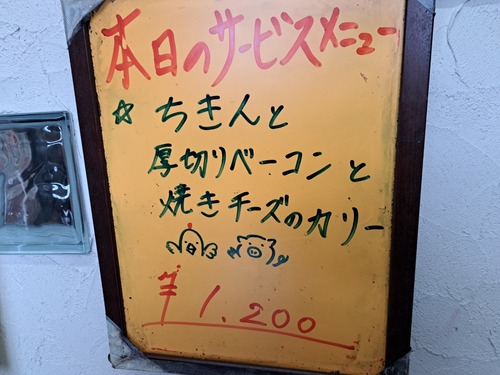 本日のサービスメニュー
☆ ちきんと
厚切りベーコンと
焼きチーズのカリー
¥1,200